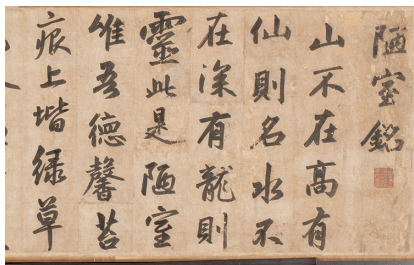 陋室銘
山不在高有
仙則名水不
在深有龍則
靈此是陋室
唯吾德馨苔
痕上堦緑草